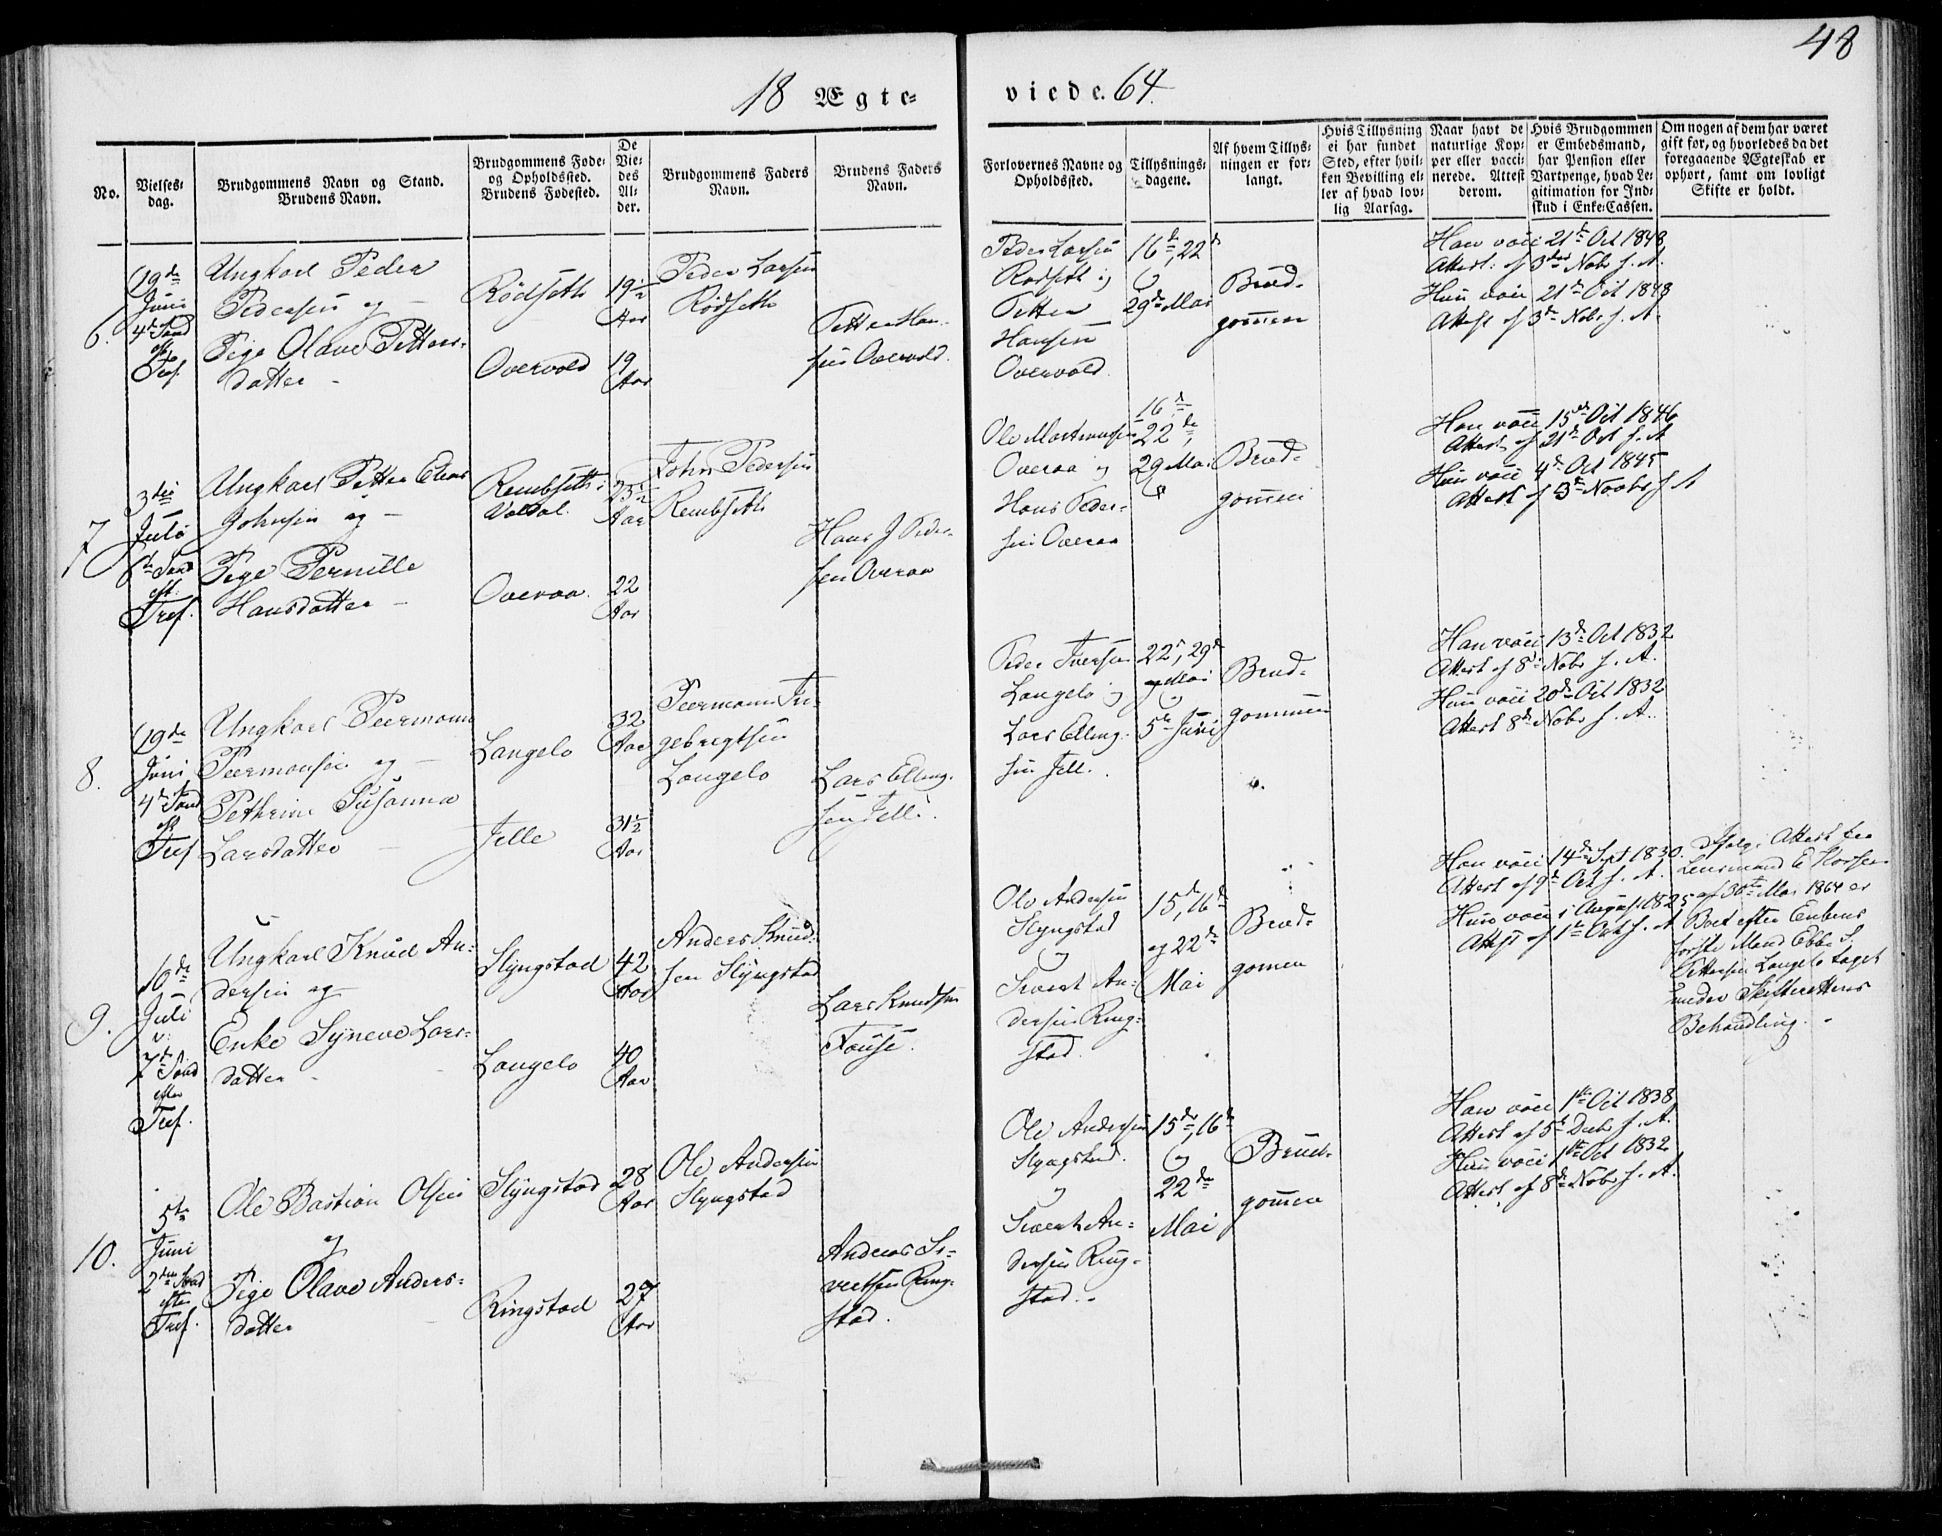 48
18 Ægte-
viede. 64.
No.
Vielses-
dag.
Brudgommens Navn og Stand.
Brudens Navn.
Brudgommens Føde-
og Opholdssted.
Brudens Fødested.
De
Vie-
des
Al-
der.
Brudgommens Faders
Navn.
Brudens Faders
Navn.
Forlovernes Navne og
Opholdssted.
Tillysnings-
dagene.
Af hvem Tillys-
ningen er for-
langt.
Hvis Tillysning
ei har fundet
Sted, efter hvil-
ken Bevilling el-
ler af hvad lov-
lig Aarsag.
Naar havt de
naturlige Kop-
per eller vacci-
nerede. Attest
derom.
Hvis Brudgommen
er Embedsmand,
har Pension eller
Vartpenge, hvad Le-
gitimation for Ind-
skud i Enke-Cassen.
Om nogen af dem har været
gift før, og hvorledes da det
foregaaende Ægteskab er
ophørt, samt om lovligt
Skifte er holdt.
6.
19de
Juni
4de Sønd
eft
Tref.
Ungkarl Peder
Pedersen og
Pige Olave Petters-
datter
Rödseth
Overvold
19½
Aar
19
Aar
Peder Larsen
Rödseth
Petter Han-
sen Overvold.
Peder Larsen
Rodseth og
Petter
Hansen
Overvold.
16de, 22de
og
29de Mai
Brud-
gommen
Han vacc 21de Oct 1848
Attest af 3die Nobr s. A.
Hun vacc 21de Oct 1848
Attest af 3die Nobr s. A.
7
3die
Juli
6te Sønd
eft.
Tref.
Ungkarl Petter Elias
Johnsen og
Pige Pernille
Hansdatter
Rembseth i
Valdal.
Overaa.
23½
Aar
22
Aar
John Pedersen
Rembseth
Hans J Peder-
sen Overaa
Ole Martinussen
Overaa og
Hans Peder-
sen Overaa
16de
22de,
29 Mai
Brud-
gommen
Han vacc 15de Oct 1846
Attest af 21de Oct s. A
Hun vacc 4de Oct 1845
Attest af 3de Novbr s A
8.
19de
Juni
4de Sønd
eft
Tref
Ungkarl Peermann
Peermansen og
Pethrine Susanna
Larsdatter
Langelo
Jelle
32
Aar
31½
Aar
Peermann In-
gebregtsen
Langelo
Lars Elling-
sen Jelle.
Peder Iversen
Langelo og
Lars Elling-
sen Jelle.
22de, 29de
Mai
og
5te Juni
Brud-
gommen
Han vacc 13de Oct 1832
Attest af 8de Nobr s. A.
Hun vacc 20de Oct 1832
Attest 8de Nobr s. A.
9.
10de
Juli
7de Sønd
efter
Tref.
Ungkarl Knud An-
dersen og
Enke Syneve Lars-
datter
Slyngstad
Langelo
42
Aar
40
Aar
Anders Knud-
sen Slyngstad
Lars Knudsen
Fause.
Ole Andersen
Slyngstad
og
Sivert An-
dersen Ring-
stad.
15, 16de
og 22de
Mai
Brud-
gomen
Han vacc 14de Sept 1830.
Attest af 9de Oct s. A.
Hun vacc i August 1825
Attest af 1ste Octb s. A
Ifølge Attest fra
Lensmand E Korsen
af 30te Mai 1864 er
Boet efter Enkens
første Mand Ebbe S.
Pettersen Langelo taget
under Skifterettens
Behandling.
10.
5te
Juni
2den Sønd
efter
Tref.
Ole Bastian Olsen
og
Pige Olave Anders-
datter
Slyngstad
Ringstad
28
Aar
27
Aar
Ole Andersen
Slyngstad
Anders Si-
vertsen Ring-
stad.
Ole Andersen
Slyngstad.
og
Sivert An-
dersen Ring-
stad.
15de, 16de
og
22de
Mai
Brud-
gomen
Han vacc 1ste Oct 1838
Attest af 5te Decbr s. A.
Hun vacc 1ste Oct 1832
Attest af 8de Nobr s. A.